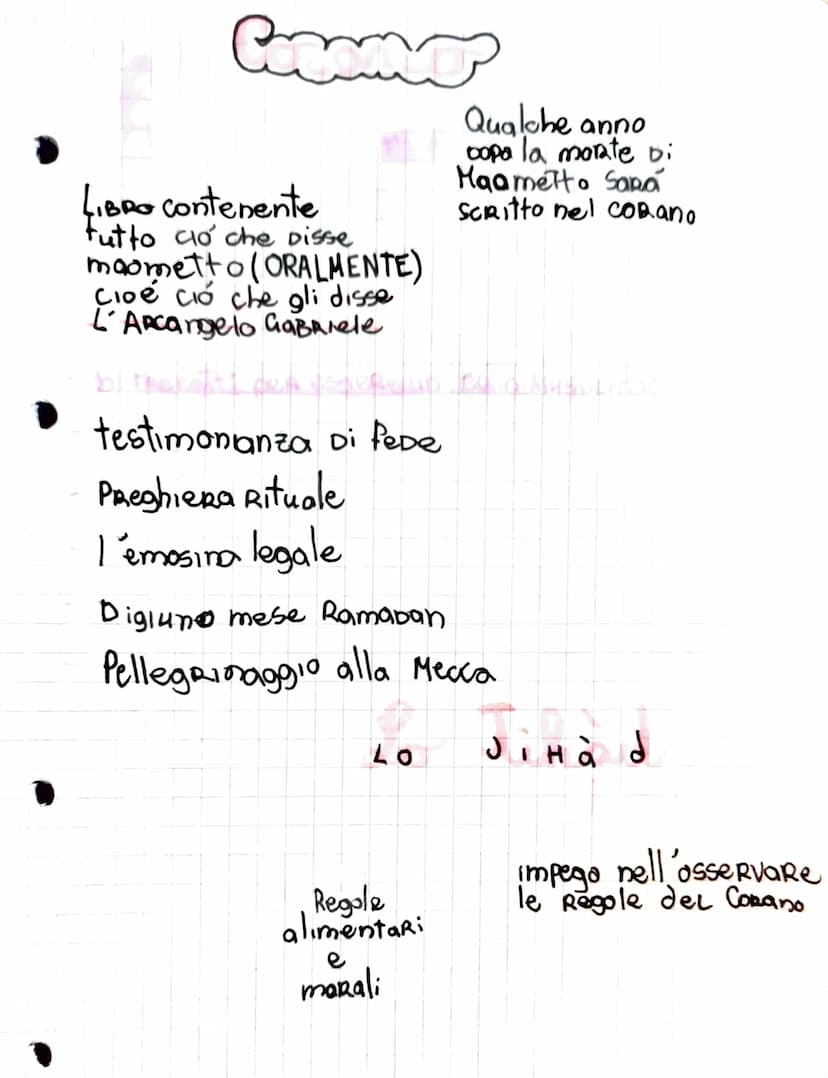 Corano
Qualche anno
dopo la morte di
Maometto sará
scritto nel Corano
Libro contenente
tutto ció che disse
maometto (ORALMENTE)
cioé ció che gli disse
L'Arcangelo Gabriele
testimonanza Di fede
Preghiera Rituale
l'emosina legale
Digiuno mese Ramadan
Pellegrinaggio alla Mecca
Lo Jihàd
impego nell'osservare
le Regole del Corano
Regole
alimentari
e
morali